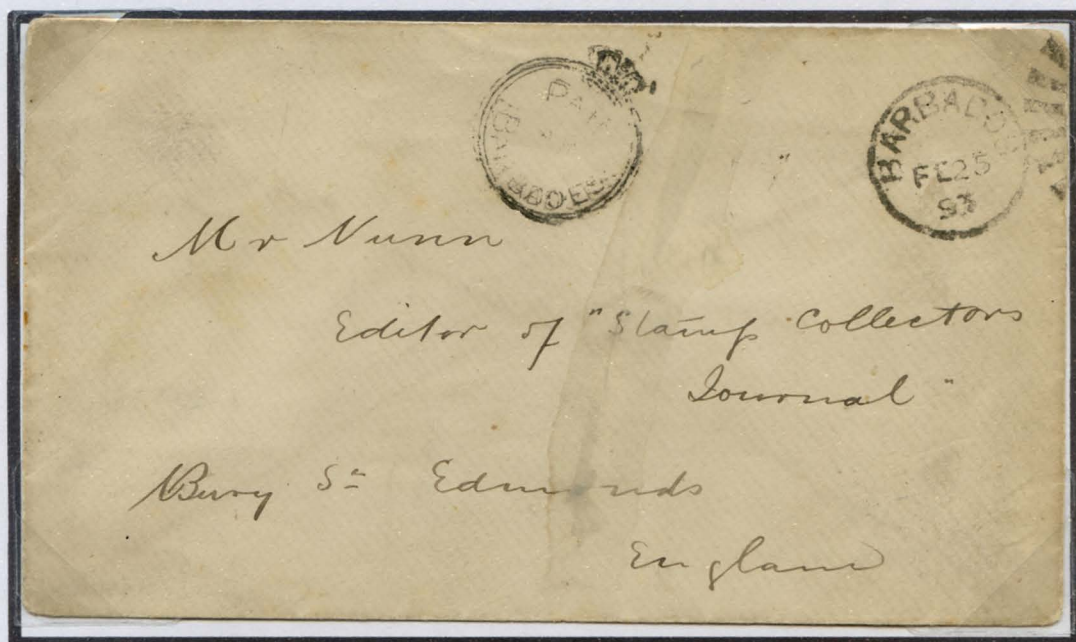 PAID
BARBADOES
BARBADOS
FE 25
93
Mr Nunn
Editor of "Stamp Collectors
Journal"
Bury St Edmunds
England